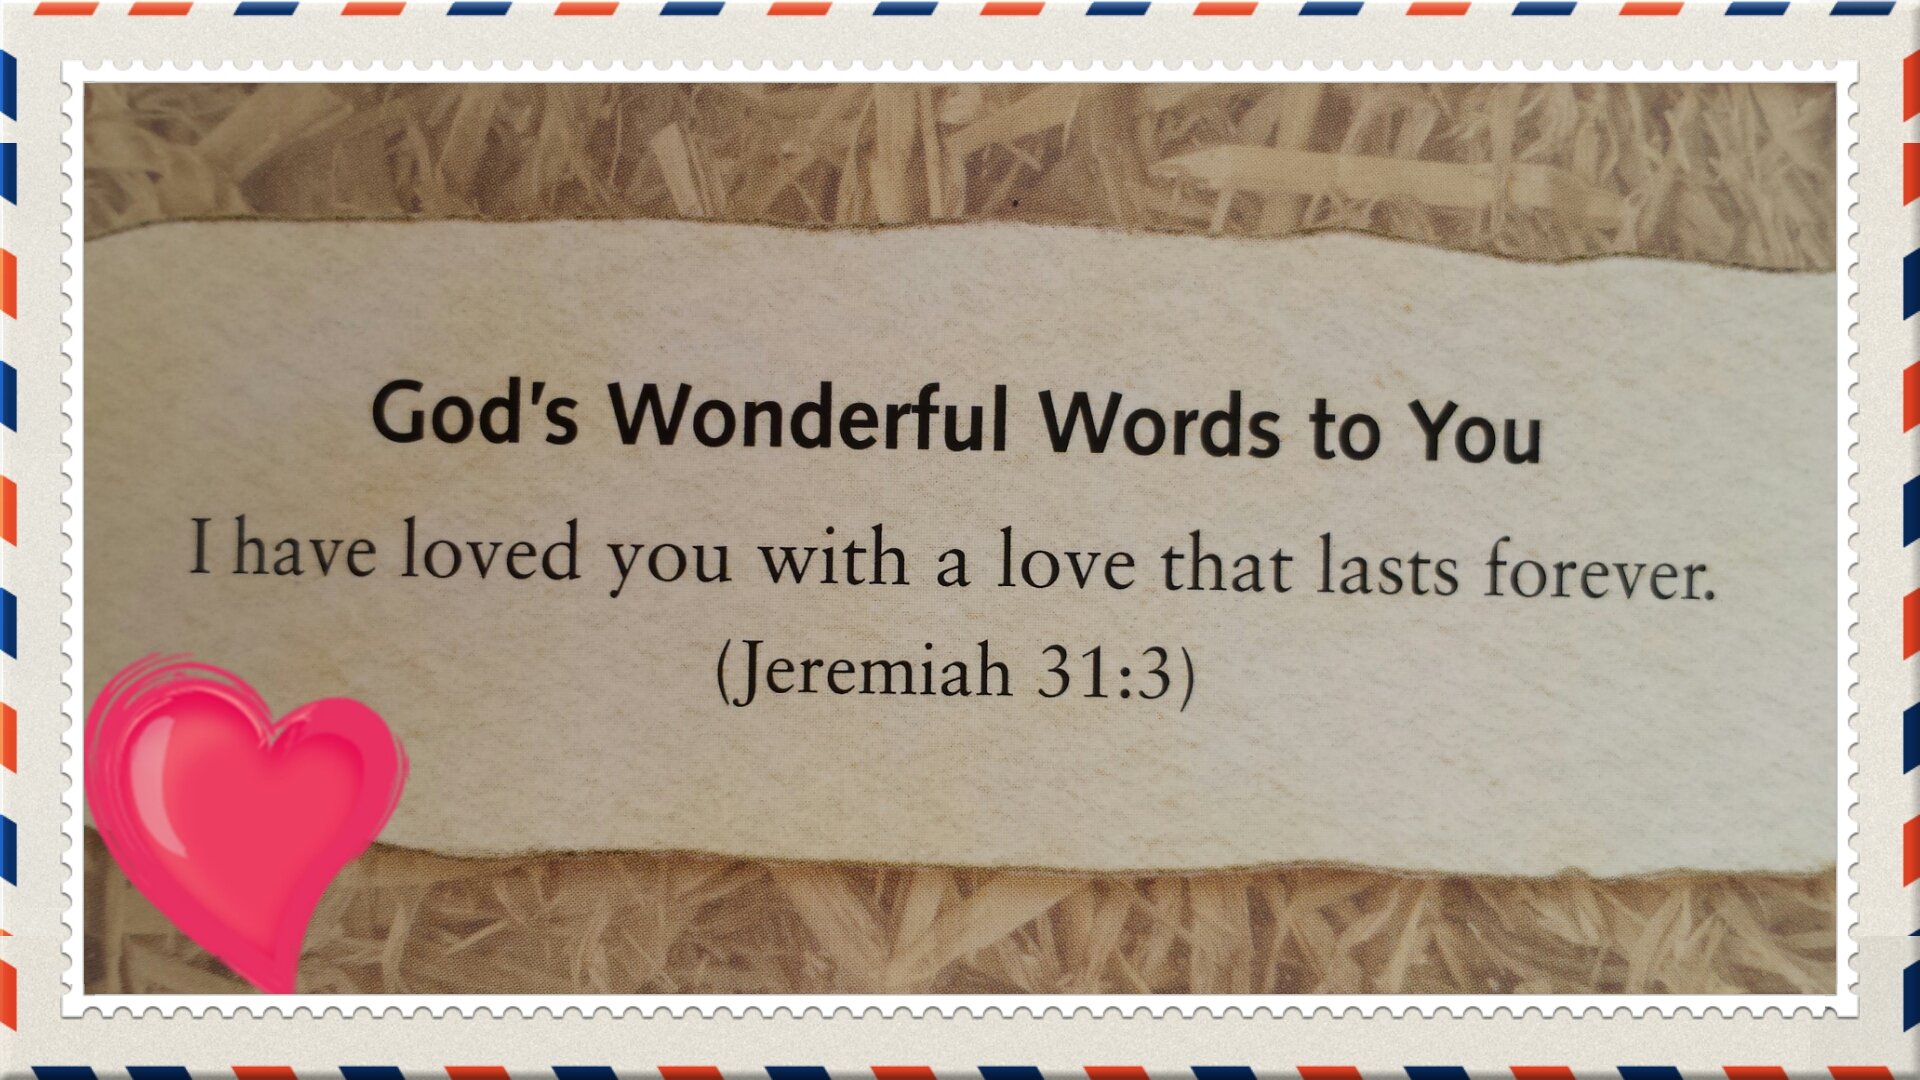 God's Wonderful Words to You
I have loved you with a love that lasts forever.
(Jeremiah 31:3)